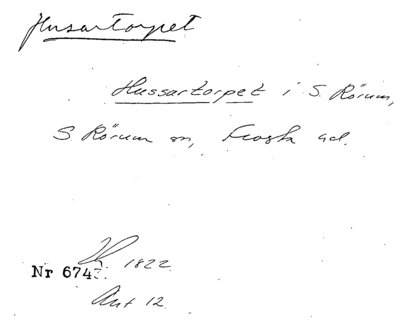 Husartorpet
Hussartorpet i S. Rörum,
S. Rörum sn, Frosta hd.
1822
Nr 6743.
Ant 12